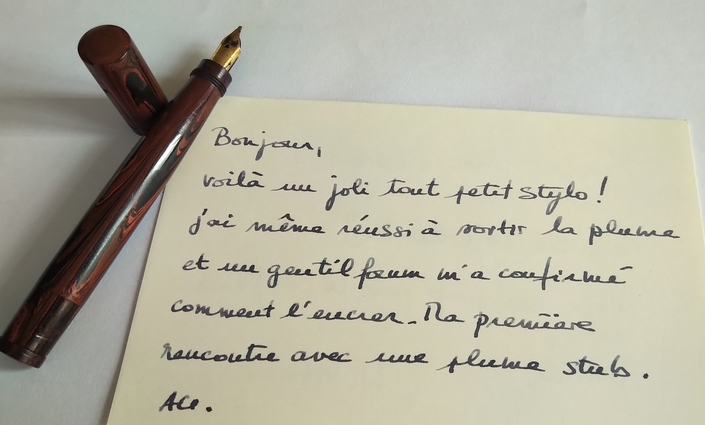 Bonjour,
voilà un joli tout petit stylo !
j'ai même réussi à sortir la plume
et un gentil forum m'a confirmé
comment l'encrer. Ma première
rencontre avec une plume stub.